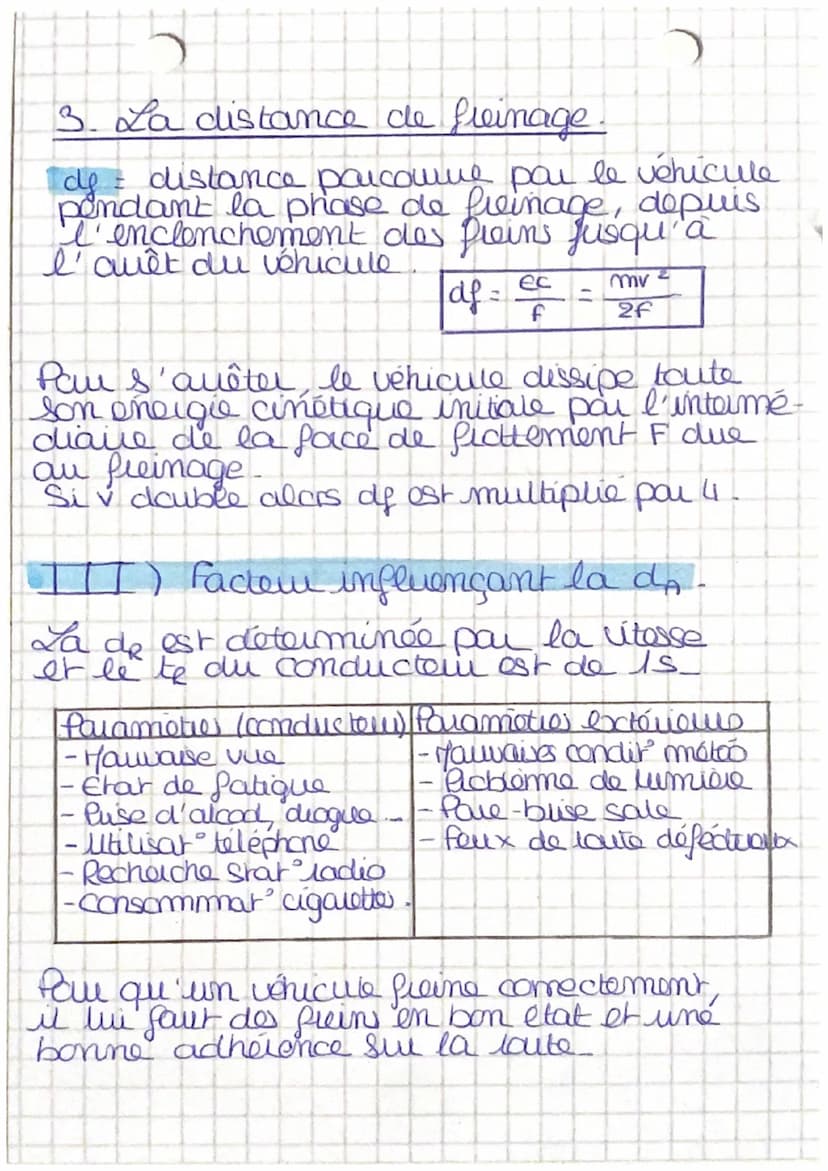 3. La distance de freinage.
df = distance parcourue par le véhicule
pendant la phase de freinage, depuis
l'enclenchement des freins jusqu'à
l'arrêt du véhicule.
df = ec/f = mv²/2f
Pour s'arrêter, le véhicule dissipe toute
son énergie cinétique initiale par l'intermé-
diaire de la force de frottement F due
au freinage.
Si v double alors df est multiplié par 4.
III) Facteur influençant la dA.
La dR est déterminée par la vitesse
et le tR du conducteur est de 1s
Paramètres (conducteur) Paramètres extérieurs
- Mauvaise vue - Mauvaises condit° météo
- Etat de fatigue - Problème de lumière
- Prise d'alcool, drogue... - Pare-brise sale
- Utilisat° téléphone - feux de route défectueux
- Recherche stat° radio
- Consommmat° cigarettes.
Pour qu'un véhicule freine correctement,
il lui faut des freins en bon état et une
bonne adhérence sur la route